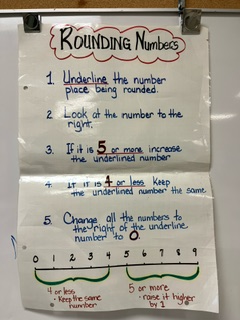 ROUNDING NUMBERS
1. Underline the number
place being rounded.
2. Look at the number to the
right.
3. If it is 5 or more increase
the underlined number
4. If it is 4 or less keep
the underlined number the same
5. Change all the numbers to
the right of the underline
number to 0.
0 1 2 3 4 5 6 7 8 9
4 or less
• Keep the same
number
5 or more
• raise it higher
by 1